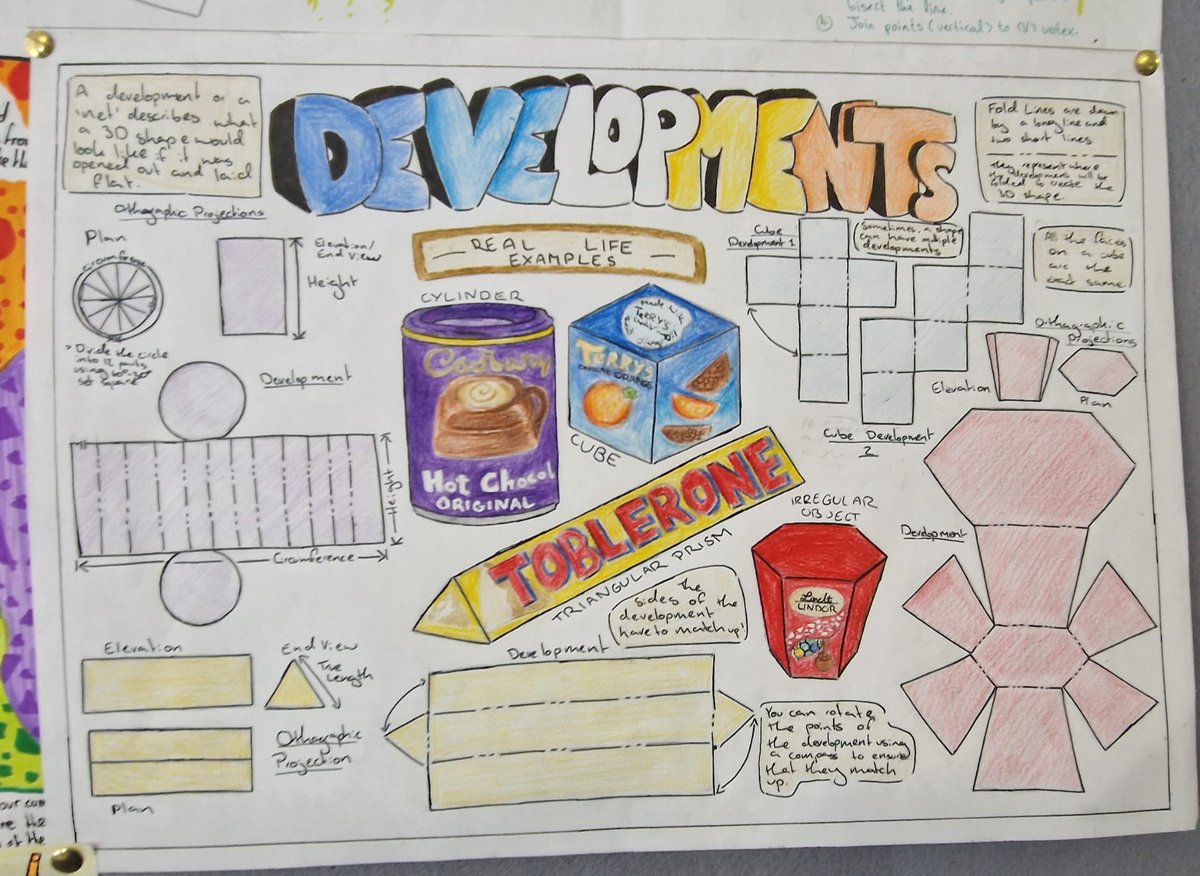 bisect the line.
④ Join points (vertical) to
? ? ?
DEVELOPMENTS
A development or a
'net' describes what
a 3D shape would
look like if it was
opened out and laid
flat.
Fold Lines are drawn
by a long line and
two short lines
They represent where
the development will be
folded to create the
3D shape
Orthographic Projections
Plan
Circumference
Elevation/
End View
Height
> Divide the circle
into 12 parts
using 60°-30°
set square
Development
Height
Circumference
REAL LIFE
EXAMPLES
CYLINDER
Cadbury
Hot Chocol
ORIGINAL
made with
TERRYS
Chocolate
Orange
TERRYS
CHOCOLATE ORANGE
CUBE
TOBLERONE
TRIANGULAR PRISM
IRREGULAR
OBJECT
Lindt
LINDOR
Cube
Development 1
Sometimes, a shape
can have multiple
developments
All the faces
on a cube
are the
exact same.
Cube Development
2
Orthagraphic
Projections
Elevation
Plan
Development
the
sides of the
development
have to match up!
Elevation
End View
True
Length
Orthagraphic
Projection
Plan
Development
You can rotate
the points of
the development using
a compass to ensure
that they match
up.